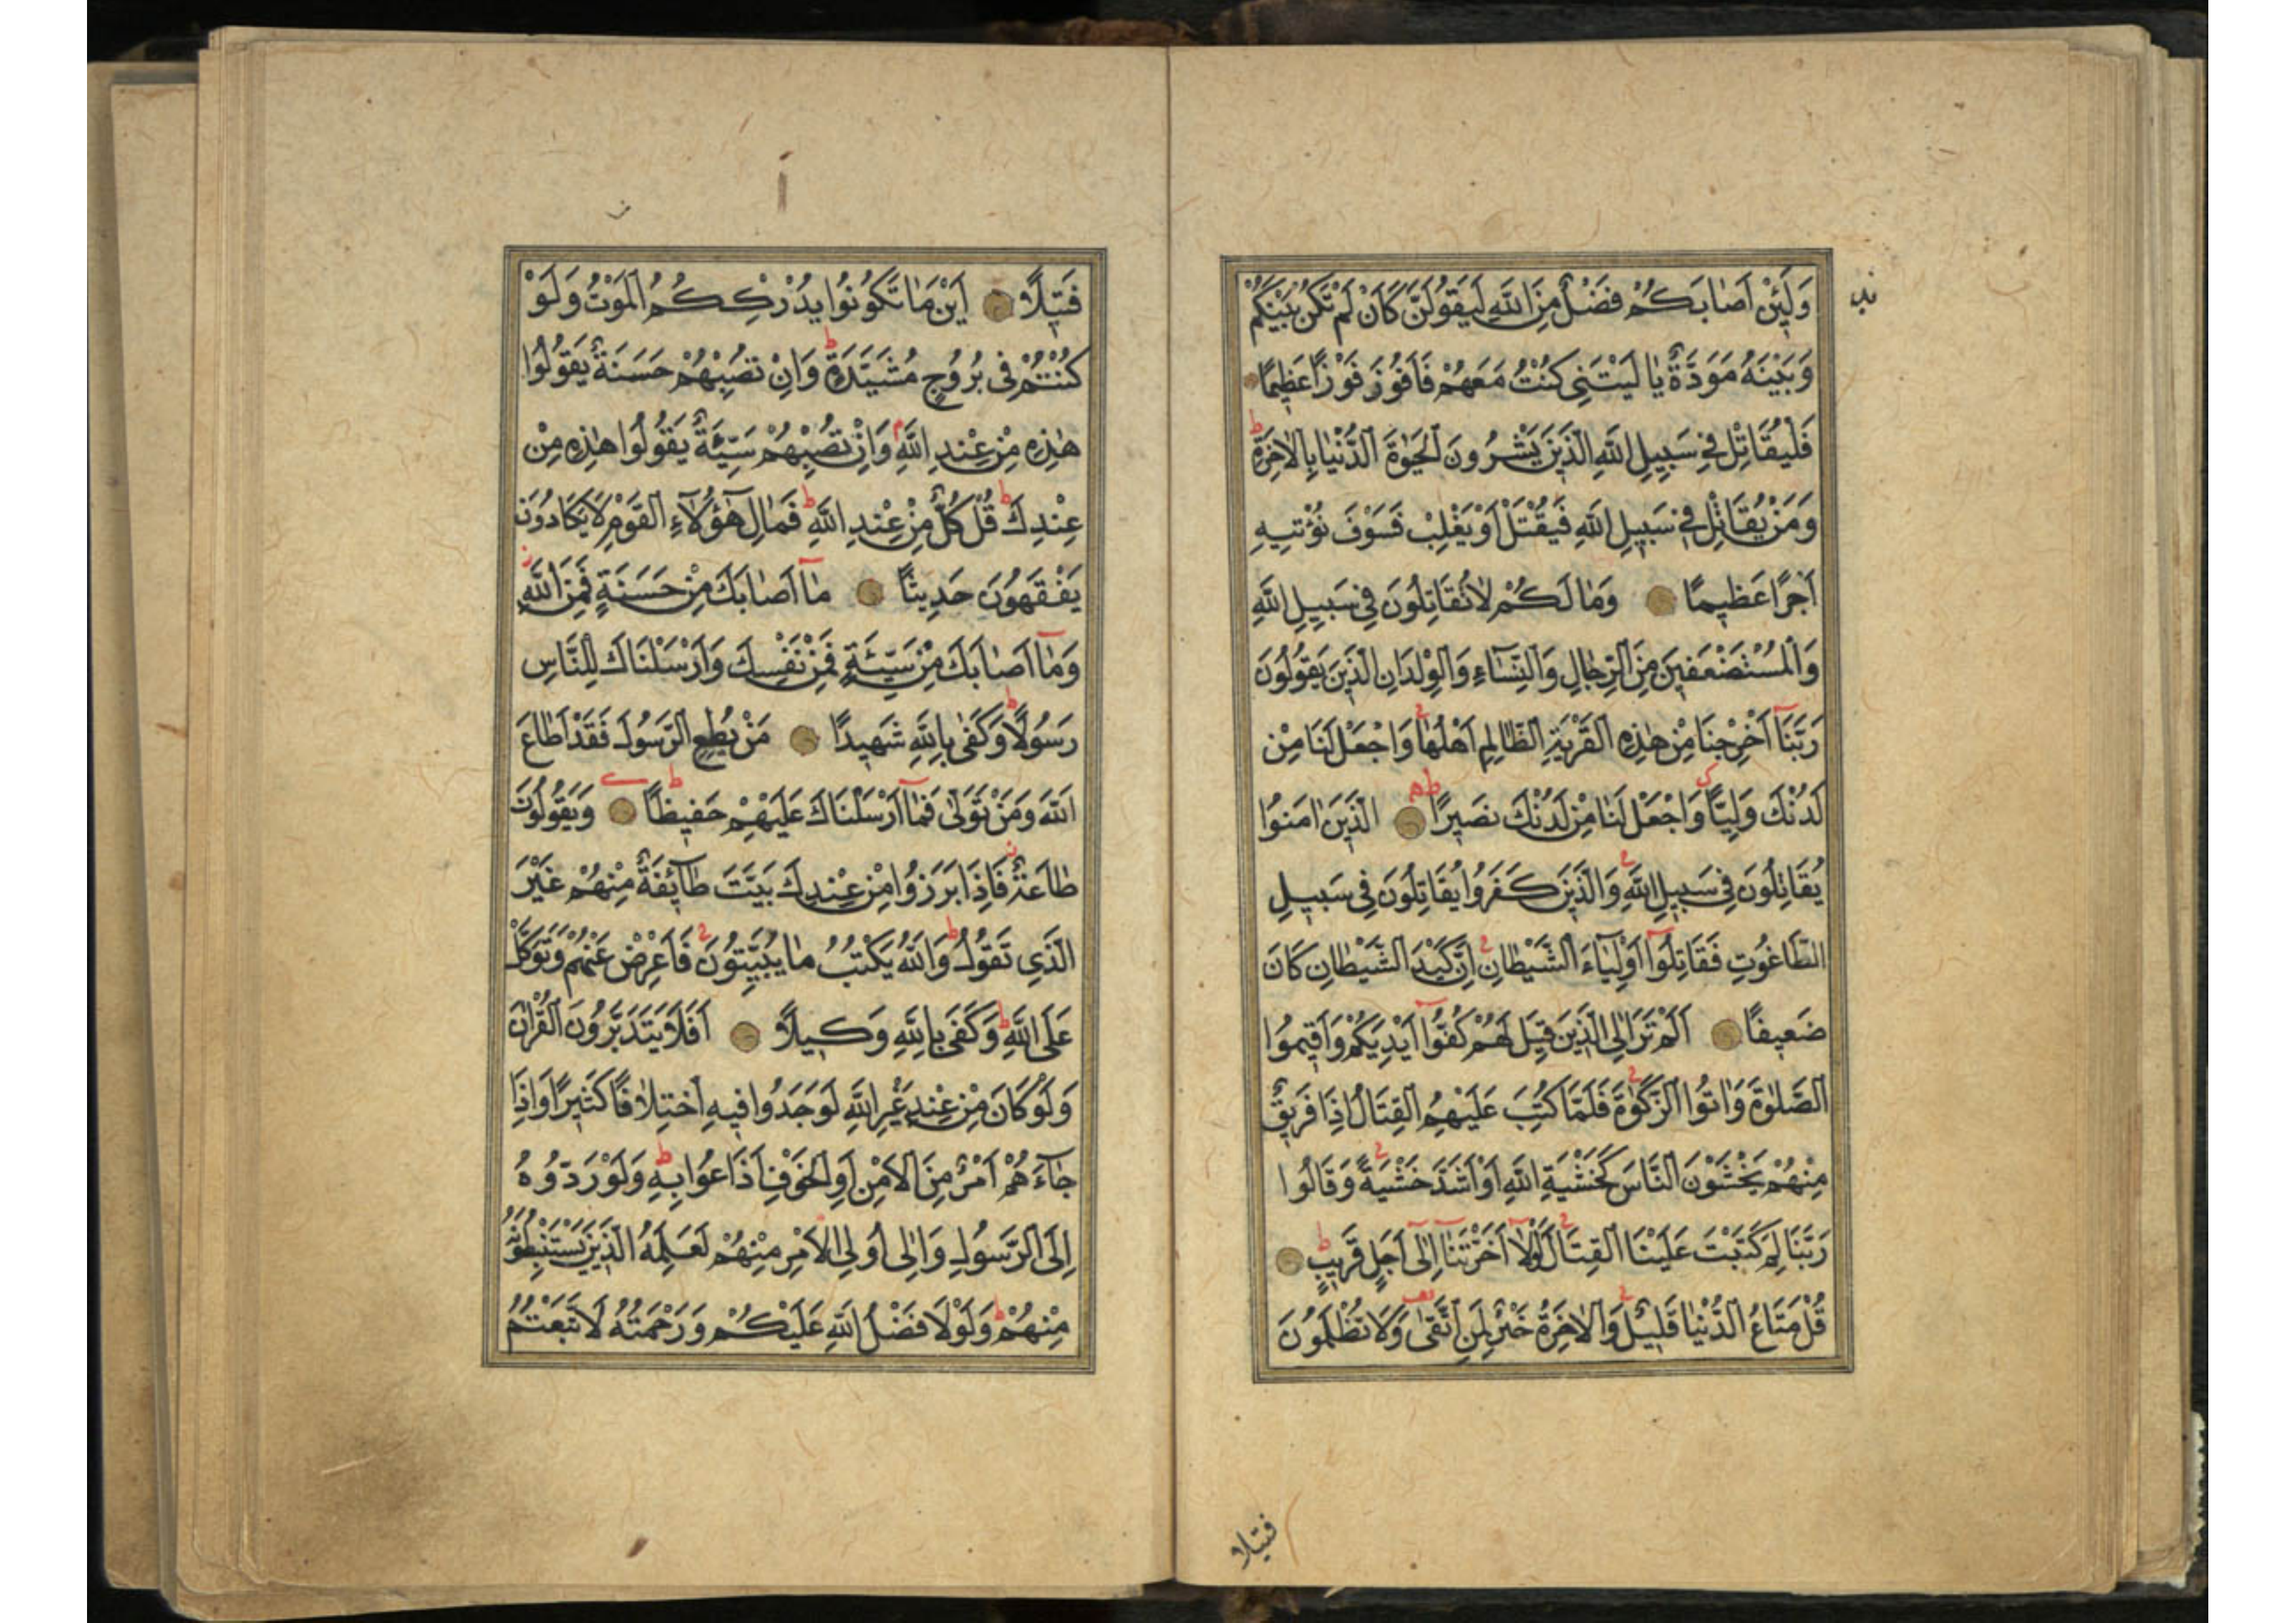 وَلَئِنْ اَصَابَكُمْ فَضْلٌ مِنَ اللّٰهِ لَيَقُولَنَّ كَاَنْ لَمْ تَكُنْ بَيْنَكُمْ
وَبَيْنَهُ مَوَدَّةٌ يَا لَيْتَنِي كُنْتُ مَعَهُمْ فَاَفُوزَ فَوْزًا عَظِيمًا
فَلْيُقَاتِلْ فِي سَبِيلِ اللّٰهِ الَّذِينَ يَشْرُونَ الْحَيٰوةَ الدُّنْيَا بِالْاٰخِرَةِ ط
وَمَنْ يُقَاتِلْ فِي سَبِيلِ اللّٰهِ فَيُقْتَلْ اَوْ يَغْلِبْ فَسَوْفَ نُؤْتِيهِ
اَجْرًا عَظِيمًا وَمَا لَكُمْ لَا تُقَاتِلُونَ فِي سَبِيلِ اللّٰهِ
وَالْمُسْتَضْعَفِينَ مِنَ الرِّجَالِ وَالنِّسَآءِ وَالْوِلْدَانِ الَّذِينَ يَقُولُونَ
رَبَّنَآ اَخْرِجْنَا مِنْ هٰذِهِ الْقَرْيَةِ الظَّالِمِ اَهْلُهَا وَاجْعَلْ لَنَا مِنْ
لَدُنْكَ وَلِيًّا وَاجْعَلْ لَنَا مِنْ لَدُنْكَ نَصِيرًا ط الَّذِينَ اٰمَنُوا
يُقَاتِلُونَ فِي سَبِيلِ اللّٰهِ وَالَّذِينَ كَفَرُوا يُقَاتِلُونَ فِي سَبِيلِ
الطَّاغُوتِ فَقَاتِلُوآ اَوْلِيَآءَ الشَّيْطَانِ اِنَّ كَيْدَ الشَّيْطَانِ كَانَ
ضَعِيفًا اَلَمْ تَرَ اِلَى الَّذِينَ قِيلَ لَهُمْ كُفُّوآ اَيْدِيَكُمْ وَاَقِيمُوا
الصَّلٰوةَ وَاٰتُوا الزَّكٰوةَ فَلَمَّا كُتِبَ عَلَيْهِمُ الْقِتَالُ اِذَا فَرِيقٌ
مِنْهُمْ يَخْشَوْنَ النَّاسَ كَخَشْيَةِ اللّٰهِ اَوْ اَشَدَّ خَشْيَةً وَقَالُوا
رَبَّنَا لِمَ كَتَبْتَ عَلَيْنَا الْقِتَالَ لَوْلَآ اَخَّرْتَنَآ اِلٰٓى اَجَلٍ قَرِيبٍ ط
قُلْ مَتَاعُ الدُّنْيَا قَلِيلٌ وَالْاٰخِرَةُ خَيْرٌ لِمَنِ اتَّقٰى وَلَا تُظْلَمُونَ
فتيلا
فَتِيلًا اَيْنَ مَا تَكُونُوا يُدْرِكْكُمُ الْمَوْتُ وَلَوْ
كُنْتُمْ فِى بُرُوجٍ مُشَيَّدَةٍ ط وَاِنْ تُصِبْهُمْ حَسَنَةٌ يَقُولُوا
هٰذِهِ مِنْ عِنْدِ اللّٰهِ م وَاِنْ تُصِبْهُمْ سَيِّئَةٌ يَقُولُوا هٰذِهِ مِنْ
عِنْدِكَ ط قُلْ كُلٌّ مِنْ عِنْدِ اللّٰهِ ط فَمَالِ هٰٓؤُلَآءِ الْقَوْمِ لَا يَكَادُونَ
يَفْقَهُونَ حَدِيثًا مَآ اَصَابَكَ مِنْ حَسَنَةٍ فَمِنَ اللّٰهِ ز
وَمَآ اَصَابَكَ مِنْ سَيِّئَةٍ فَمِنْ نَفْسِكَ وَاَرْسَلْنَاكَ لِلنَّاسِ
رَسُولًا ط وَكَفٰى بِاللّٰهِ شَهِيدًا مَنْ يُطِعِ الرَّسُولَ فَقَدْ اَطَاعَ
اللّٰهَ وَمَنْ تَوَلّٰى فَمَآ اَرْسَلْنَاكَ عَلَيْهِمْ حَفِيظًا ط وَيَقُولُونَ
طَاعَةٌ فَاِذَا بَرَزُوا مِنْ عِنْدِكَ بَيَّتَ طَآئِفَةٌ مِنْهُمْ غَيْرَ
الَّذِي تَقُولُ ط وَاللّٰهُ يَكْتُبُ مَا يُبَيِّتُونَ فَاَعْرِضْ عَنْهُمْ وَتَوَكَّلْ
عَلَى اللّٰهِ ط وَكَفٰى بِاللّٰهِ وَكِيلًا اَفَلَا يَتَدَبَّرُونَ الْقُرْاٰنَ
وَلَوْ كَانَ مِنْ عِنْدِ غَيْرِ اللّٰهِ لَوَجَدُوا فِيهِ اخْتِلَافًا كَثِيرًا وَاِذَا
جَآءَهُمْ اَمْرٌ مِنَ الْاَمْنِ اَوِ الْخَوْفِ اَذَاعُوا بِهِ ط وَلَوْ رَدُّوهُ
اِلَى الرَّسُولِ وَاِلٰى اُولِي الْاَمْرِ مِنْهُمْ لَعَلِمَهُ الَّذِينَ يَسْتَنْبِطُونَهُ
مِنْهُمْ ط وَلَوْلَا فَضْلُ اللّٰهِ عَلَيْكُمْ وَرَحْمَتُهُ لَاتَّبَعْتُمُ